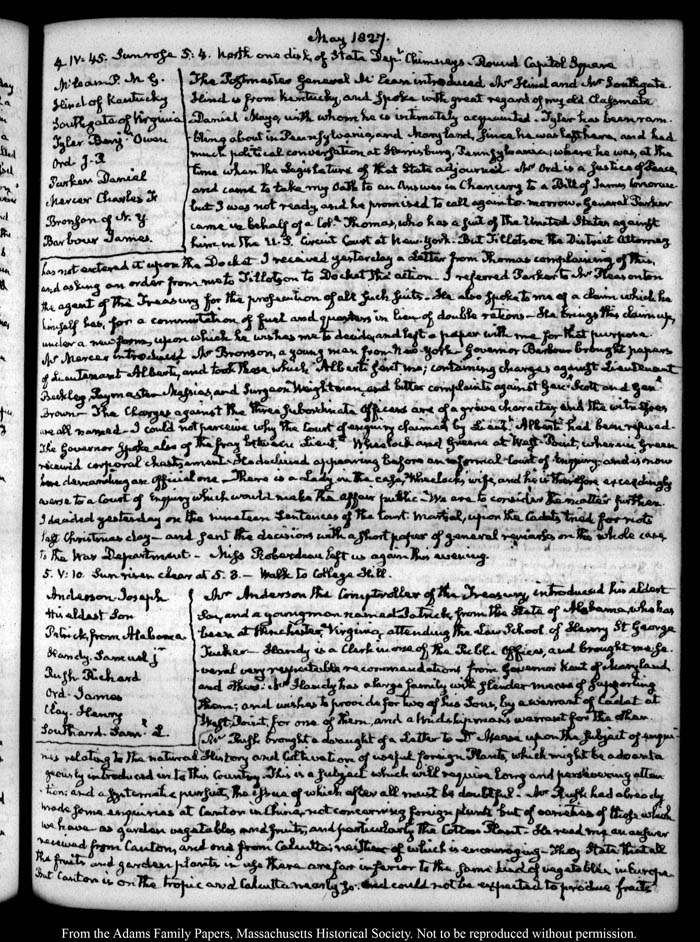 May 1827.
4. IV:45. Sun rose 5:4. North one disk, of State Dep.t Chimneys. Round Capitol Square
McLean P. M. G.
Hind of Kentucky
Southgate of Virginia
Tyler Benj.n Owen
Ord J. P.
Parker Daniel
Mercer Charles F
Bronson of N. Y
Barbour James.
The Postmaster General McLean introduced Mr Hind and Mr Southgate.
Hind is from Kentucky, and spoke with great regard of my old Classmate
Daniel Mayo, with whom he is intimately acquainted. Tyler has been ram-
bling about in Pennsylvania, and Maryland, since he was last here, and had
much political conversation at Harrisburg, Pennsylvania; where he was, at the
time when the Legislature of that State adjourned. Mr Ord is a Justice of Peace,
and came to take my Oath to an Answer in Chancery to a Bill of James
but I was not ready and he promised to call again to-morrow. General Parker
came in behalf of a Col.l Thomas, who has a suit of the United States against
him in the U. S. Circuit Court at New-York. But Tillotson the District Attorney
has not entered it upon the Docket. I received yesterday a Letter from Thomas complaining of this,
and asking an order from me to Tillotson to Docket the action. I referred Parker to Mr Pleasonton
the agent of the Treasury for the prosecution of all such suits. He also spoke to me of a claim which he
himself has, for a commutation of fuel and quarters in lieu of double rations. He brings this claim up,
under a new form, upon which he wishes me to decide, and left a paper with me for that purpose.
Mr Mercer introduced Mr Bronson, a young man from New-York. Governor Barbour brought papers
of Lieutenant Alberti, and took those which Alberti sent me; containing charges against Lieutenant
Beckley, Paymaster Massias, and Surgeon Weightman, and bitter complaints against Gen.l Scott and Gen.l
Brown. The Charges against the three subordinate Officers are of a grave character, and the witnesses
are all named. I could not perceive why the Court of enquiry claimed by Lieut.t Alberti had been refused.
The Governor spoke also of the fray between Lieut.ts Wheelock and Greene at West-Point, wherein Green
received corporal chastisement. He declined appearing before an informal Court of Enquiry and is now
here demanding an official one. There is a Lady in the case, Wheelock's wife, and he is therefore exceedingly
averse to a Court of Enquiry which would make the affair public. We are to consider the matter further.
I decided yesterday on the nineteen Sentences of the Court Martial, upon the Cadets tried for riots
last Christmas day — and sent the decisions with a short paper of general remarks on the whole case,
to the War Department. Miss Roberdeau left us again this evening.
5. V:10. Sun risen clear at 5. 3. — Walk to College Hill.
Anderson Joseph
His eldest Son
Patrick, from Alabama
Handy. Samuel J
Rush Richard
Ord. James
Clay. Henry
Southard. Sam.l L.
Mr Anderson the Comptroller of the Treasury, introduced his eldest
Son, and a young man named Patrick, from the State of Alabama, who has
been at Winchester, Virginia, attending the Law School of Henry St George
Tucker. Handy is a Clerk in one of the Public Offices, and brought me se-
veral very respectable recommendations from Governor Kent of Maryland,
and others. Mr Handy has a large family with slender means of supporting
them; and wishes to provide for two of his Sons, by a warrant of Cadet at
West-Point, for one of them and a Midshipman's warrant for the other.
Mr Rush brought a draught of a Letter to Dr Mease upon the subject of enqui-
ries relating to the natural History and Cultivation of useful foreign Plants, which might be advanta-
geously introduced in to this Country. This is a subject which will require long and persevering atten-
tion; and a systematic pursuit, the issue of which after all must be doubtful. Mr Rush had already
made some enquiries at Canton in China, not concerning foreign plants but of varieties of those which
we have as garden vegetables and fruits, and particularly the Cotton Plant. He read me an answer
received from Canton, and one from Calcutta; neither of which is encouraging. They state that all
the fruits and garden plants in use there are far inferior to the same kind of vegetables in Europe.
But Canton is on the tropic and Calcutta nearly so. and could not be expected to produce fruits
From the Adams Family Papers, Massachusetts Historical Society. Not to be reproduced without permission.